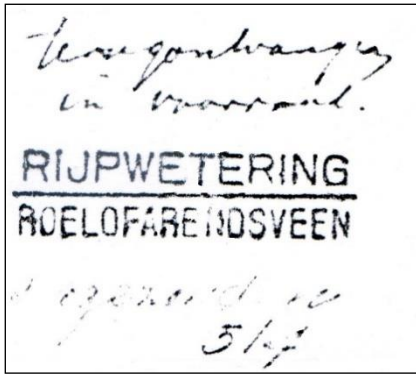 terugontvangen
in voorraad.
RIJPWETERING
ROELOFARENDSVEEN